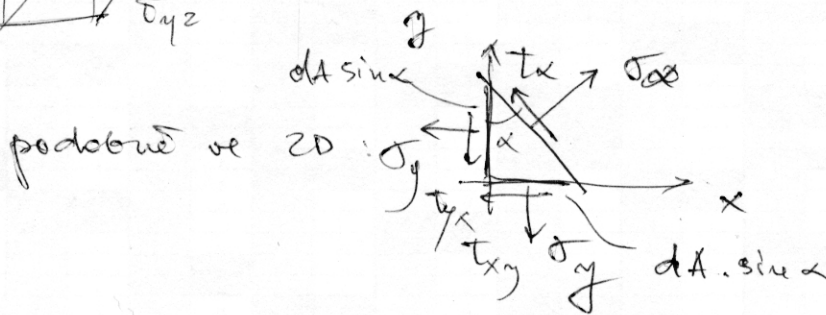 σyz
y
dA sinα
tα
σα
podobně ve 2D : σy
α
x
tyx
txy
σy
dA. sin α